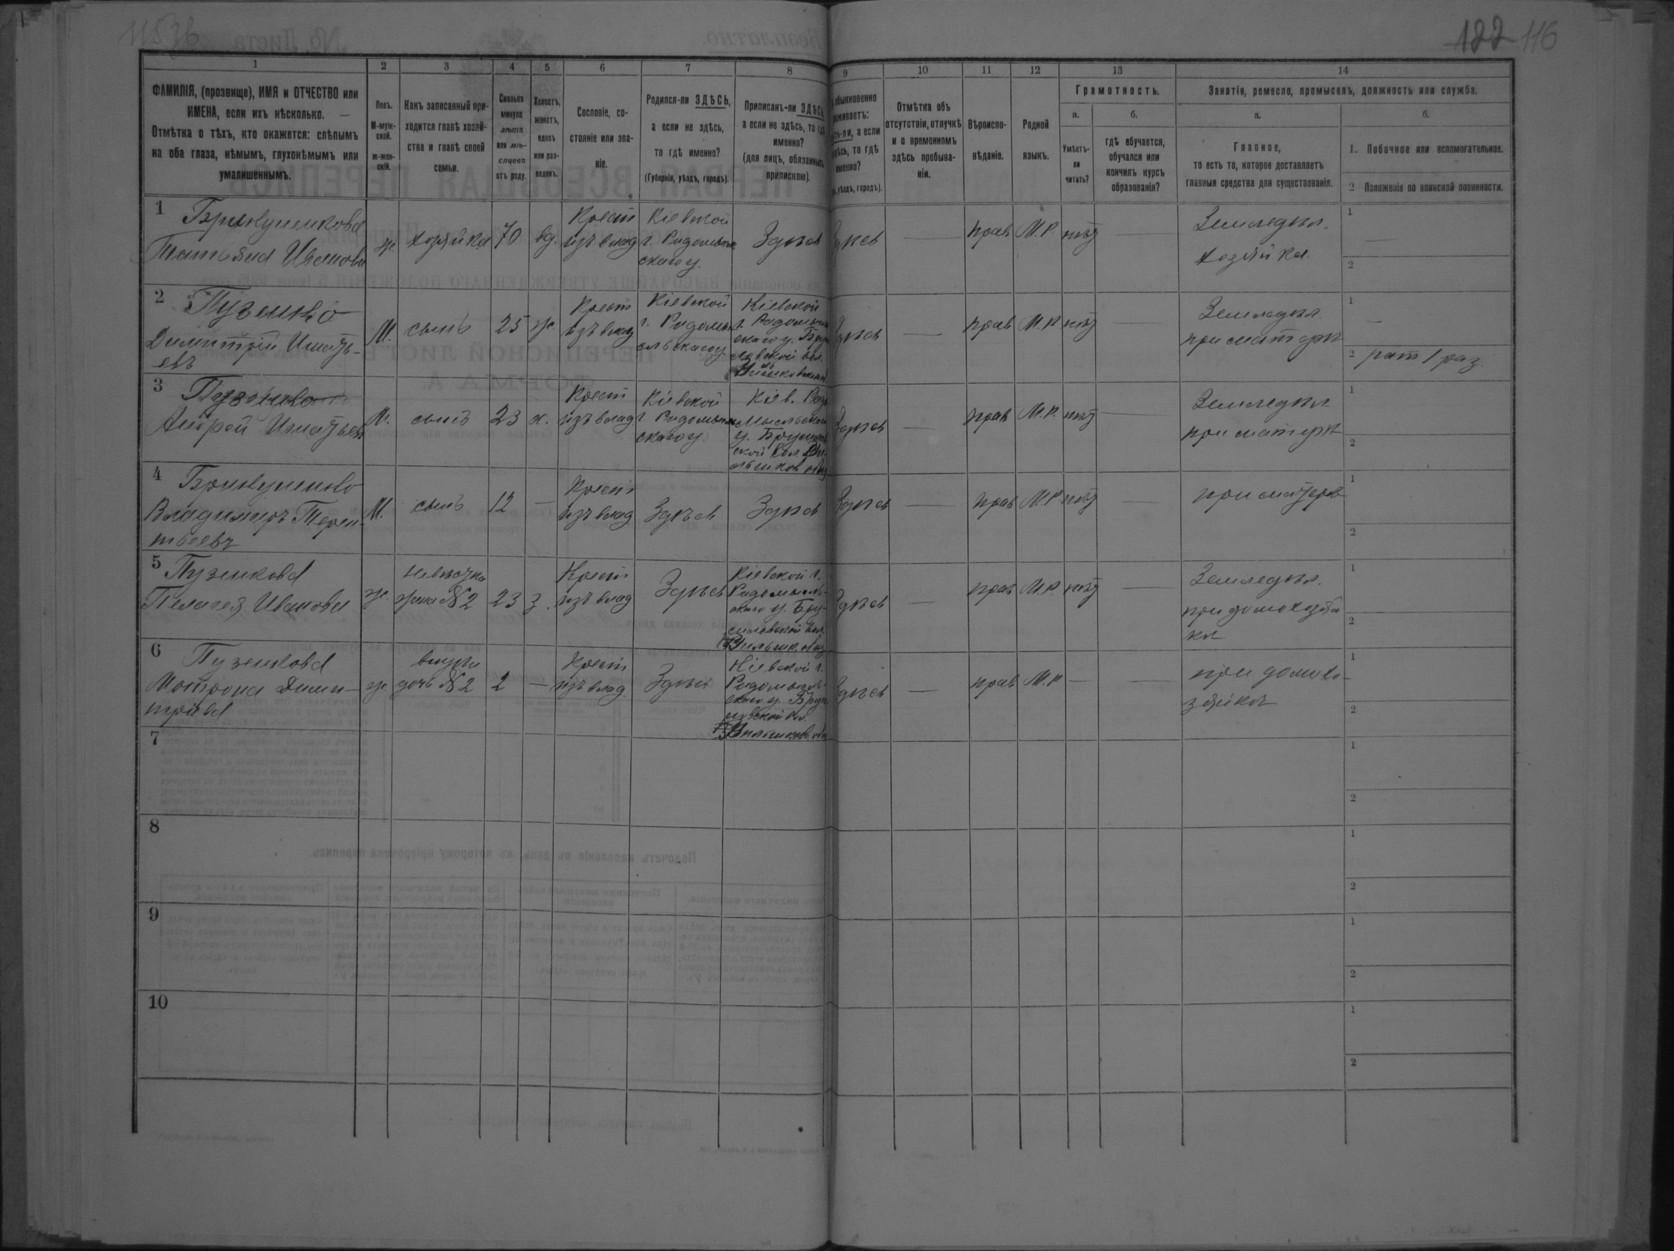 11536
122 116
1
2
3
4
5
6
7
8
9
10
11
12
13
14
ФАМИЛІЯ, (прозвище), ИМЯ и ОТЧЕСТВО или
ИМЕНА, если ихъ нѣсколько.
Отмѣтка о тѣхъ, кто окажется: слѣпымъ
на оба глаза, нѣмымъ, глухонѣмымъ или
умалишеннымъ.
Полъ.
М-муж-
ской.
ж-жен-
скій.
Какъ записанный при-
ходится главѣ хозяй-
ства и главѣ своей
семьи.
Сколько
минуло
лѣтъ
или мѣ-
сяцевъ
отъ роду.
Холостъ,
женатъ,
вдовъ
или раз-
веденъ.
Сословіе, со-
стояніе или зва-
ніе.
Родился-ли ЗДѢСЬ,
а если не здѣсь,
то гдѣ именно?
(Губернія, уѣздъ, городъ).
Приписанъ-ли ЗДѢСЬ,
а если не здѣсь, то гдѣ
именно?
(для лицъ, обязанныхъ
припискою).
обыкновенно
а если
здѣсь, то гдѣ
именно?
уѣздъ, городъ).
Отмѣтка объ
отсутствіи, отлучкѣ
и о временномъ
здѣсь пребыва-
ніи.
Вѣроиспо-
вѣданіе.
Родной
языкъ.
Грамотность.
а.
Умѣетъ-
ли
читать?
б.
гдѣ обучается,
обучался или
кончилъ курсъ
образованія?
Занятіе, ремесло, промыселъ, должность или служба.
а.
Главное,
то есть то, которое доставляетъ
главныя средства для существованія.
б.
1. Побочное или вспомогательное.
2 Положеніе по воинской повинности.
1
Татьяна Иванова
ж
хозяйка
70
вд.
Крест
изъ влад
Кіевской
г. Радомысль
скаго у.
Здѣсь
Здѣсь
прав
М.Р.
нѣт
Земледѣл.
хозяйка
1
2
2
Пузенко
Димитрій Игнать-
евъ
М.
сынъ
25
ж.
Крест
изъ влад
Кіевской
г. Радомы
сльскаго у
Кіевской
г. Радомысль
скаго у. Бру
Здѣсь
—
прав
М.Р.
нѣт
—
Земледѣл.
при матери
1
2 рат 1 раз
3
Пузенко
Андрей Игнатьевъ
М.
сынъ
23
х.
Крест
изъ влад
Кіевской
г. Радомысль
скаго у
Кіев. Радо
мысльскаго
Здѣсь
прав
М.Р.
нѣт
—
Земледѣл
при матери
1
2
4
Владимиръ Терен-
тьевъ
М.
сынъ
12
—
Крест
изъ влад
Здѣсь
Здѣсь
Здѣсь
—
прав
М.Р.
нѣт
—
при матери
1
2
5
Пузенкова
Пелагея Иванова
ж.
невѣстка
жена №2
23
з.
Крест
изъ влад
Здѣсь
Кіевской г.
Радомысль-
скаго у. Бру-
силовской вол
Здѣсь
—
прав
М.Р.
нѣт
—
Земледѣл.
при домохозяй
ки
1
2
6
Пузенкова
Матрона Дими-
трова
ж.
внучка
дочь №2
2
—
Крест
изъ влад
Здѣсь
Кіевской г.
Радомысль-
скаго у. Бруси
Здѣсь
—
прав
М.Р.
—
—
при домохо-
зяйки
1
2
7
1
2
8
1
2
9
1
2
10
1
2